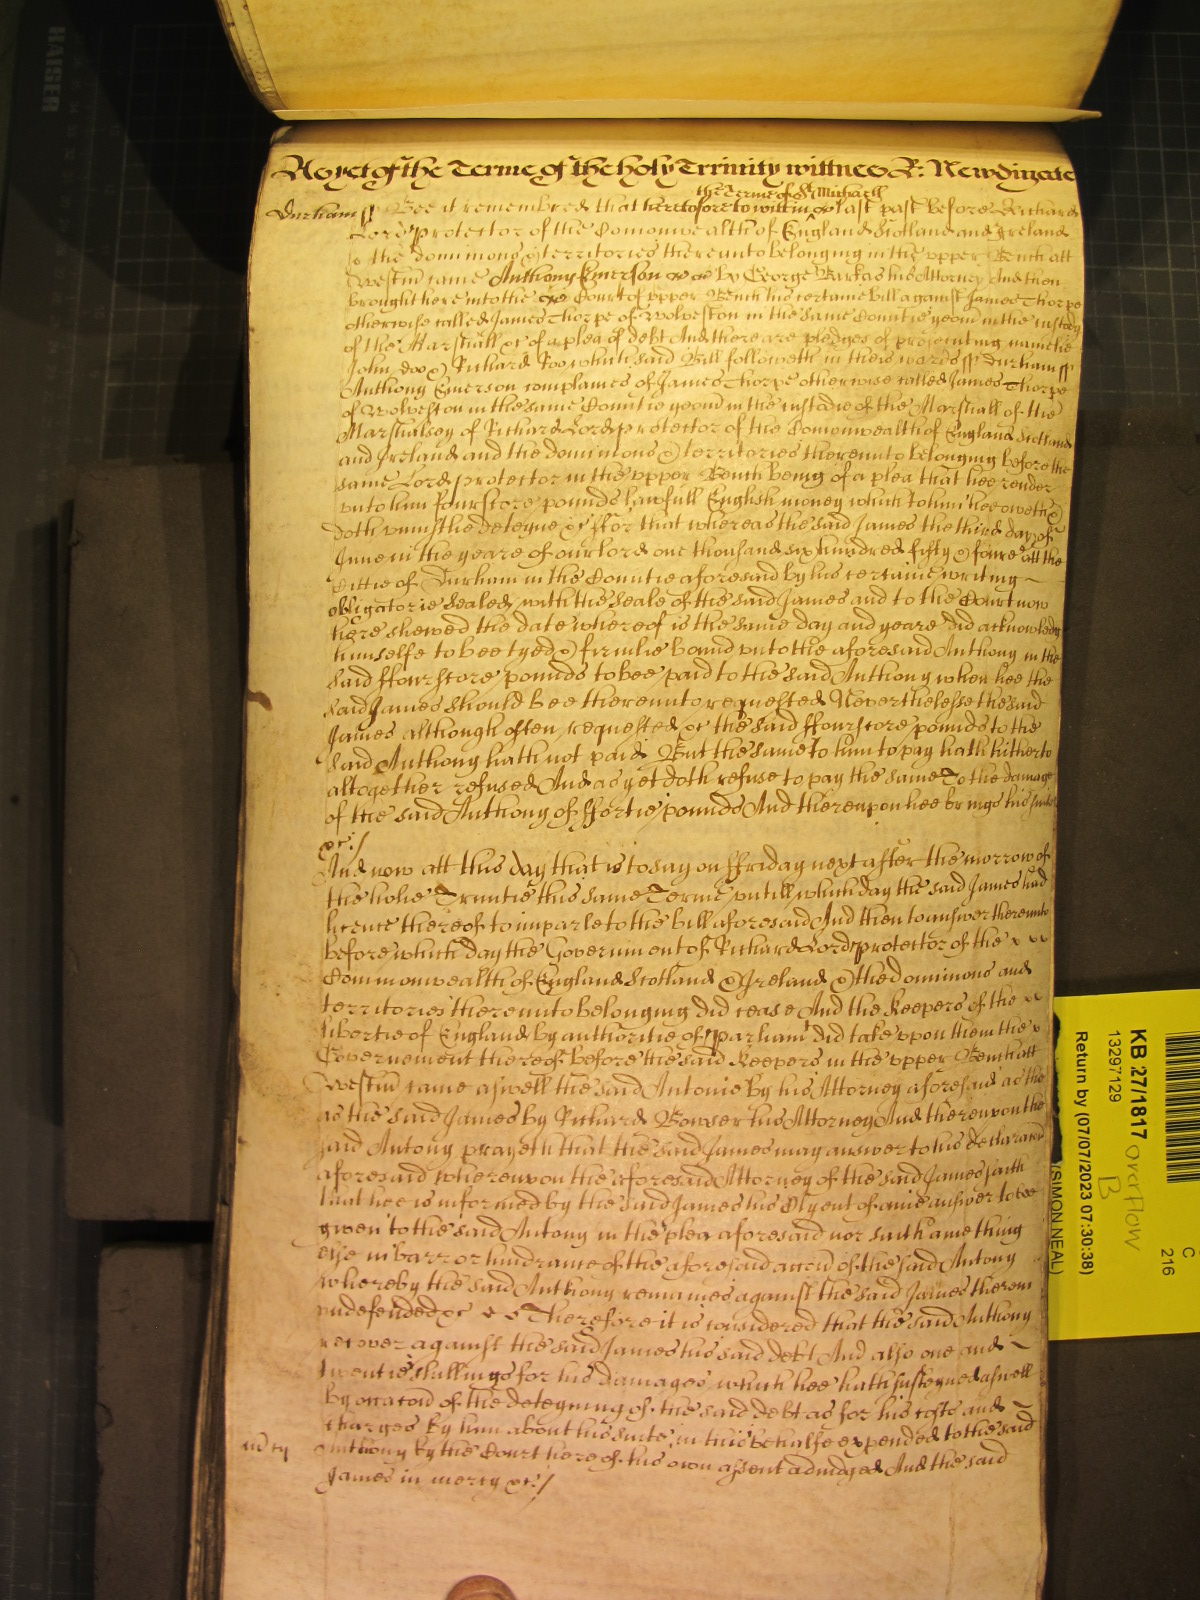 As yet of the Terme of the holy Trinity wittnes R: Newdigate
the Terme of St Michaell
Durham ss Bee it remembred that heretofore to witt in last past before Richard
Lord protector of the Comonwealth of England Scotland and Ireland
& the dominions & territories thereunto belonging in the vpper Bench att
Westm came Anthony Emerson by George Barkas his Attorney And then
brought here into the Court of vpper Bench his certaine bill against James Thorpe
otherwise called James Thorpe of Wolveston in the same Countie yeom in the custody
of the Marshall &c of a plea of debt And there are pledges of prosecuting namelie
John doo & Richard Roo which said Bill followeth in theis words ss Durham ss
Anthony Emerson complaines of James Thorpe otherwise called James Thorpe
of Wolveston in the same Countie yeom in the custodie of the Marshall of the
Marshalsey of Richard Lord protector of the Comonwealth of England Scotland
and Ireland and the dominions & territories thereunto belonging before the
same Lord protector in the vpper Bench being of a plea that hee render
vnto him fourscore pounds lawfull English money which to him hee oweth &
doth vniustlie deteyne &c ffor that whereas the said James the third day of
June in the yeare of our lord one thousand six hundred fifty & foure att the
Cittie of Durham in the Countie aforesaid by his certaine writing
obligatorie Sealed with the Seale of the said James and to the Court now
here shewed the date whereof is the same day and yeare did acknowledg
himselfe to bee tyed & firmlie bound vnto the aforesaid Anthony in the
said ffourscore pounds to bee paid to the said Anthony when hee the
said James should bee thereunto requested Neverthelesse the said
James although often requested &c the said ffourscore pounds to the
said Anthony hath not paid But the same to him to pay hath hitherto
altogether refused And as yet doth refuse to pay the same To the damage
of the said Anthony of ffortie pounds And thereupon hee brings his suite
&c:/
And now att this day that is to say on ffriday next after the morrow of
the holie Trinitie this same Terme vntill which day the said James had
licence thereof to imparle to the bill aforesaid And then to answer thereunto
before which day the Government of Richard Lord protector of the
Commonwealth of England Scotland & Ireland & the dominions and
territories thereunto belonging did cease And the Keepers of the
libertie of England by authoritie of parliamt did take vpon them the
Governement thereof before the said Keepers in the vpper Bench att
Westm came aswell the said Antonie by his Attorney aforesaid as the
as the said James by Richard Bowser his Attorney And therevpon the
said Antony prayeth that the said James may answer to his declaracon
aforesaid wherevpon the aforesaid Attorney of the said James saith
that hee is informed by the said James his Clyent of anie answer to bee
given to the said Antony in the plea aforesaid nor saith anie thing
else in barr or hindrance of the aforesaid accon of the said Antony
whereby the said Anthony remaines against the said James therein
vndefended &c Therefore it is considered that the said Anthony
recover against the said James his said debt And also one and
twentie shillings for his damages which hee hath susteyned aswell
by occacon of the deteyning of the said debt as for his costs and
charges by him about his suite in this behalfe expended to the said
Anthony by the Court here of his own assent adiudged And the said
James in mercy &c:/
KB 27/1817 overflow
B
13297129
Return by (07/07/2023 07:30:38)
(SIMON NEAL)
C
216
HAISER